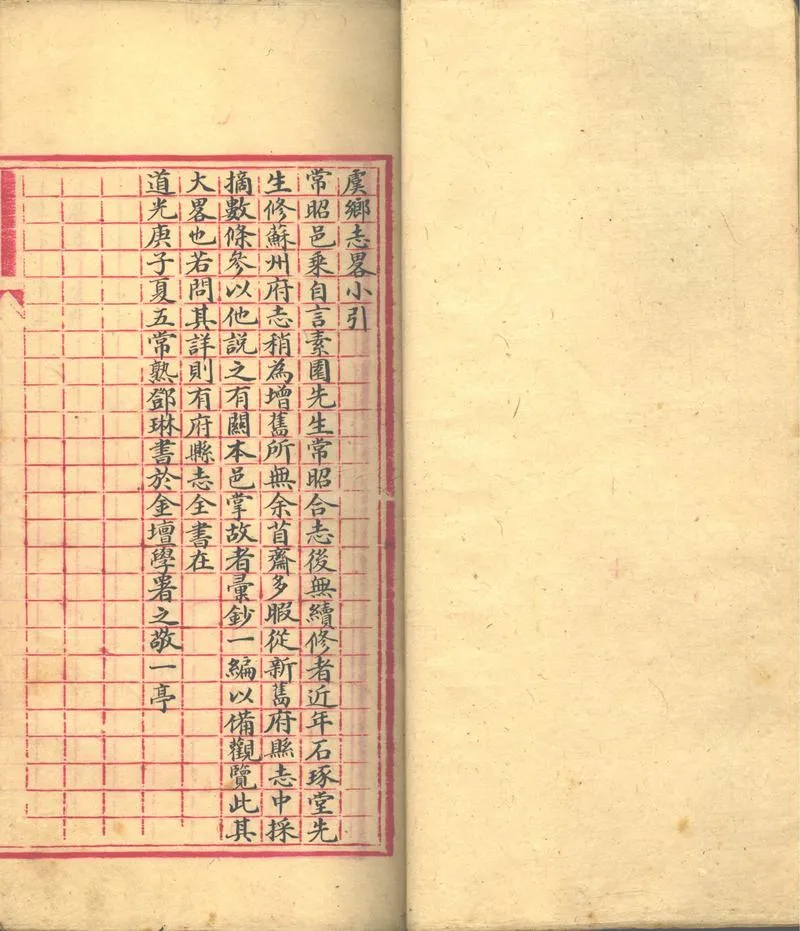 虞鄉志畧小引
常昭邑乘自言素園先生常昭合志後無續修者近年石琢堂先
生修蘇州府志稍為增舊所無余苜齋多暇從新舊府縣志中採
摘數條參以他說之有關本邑掌故者彙鈔一編以備觀覽此其
大畧也若問其詳則有府縣志全書在
道光庚子夏五常熟鄧琳書於金壇學署之敬一亭